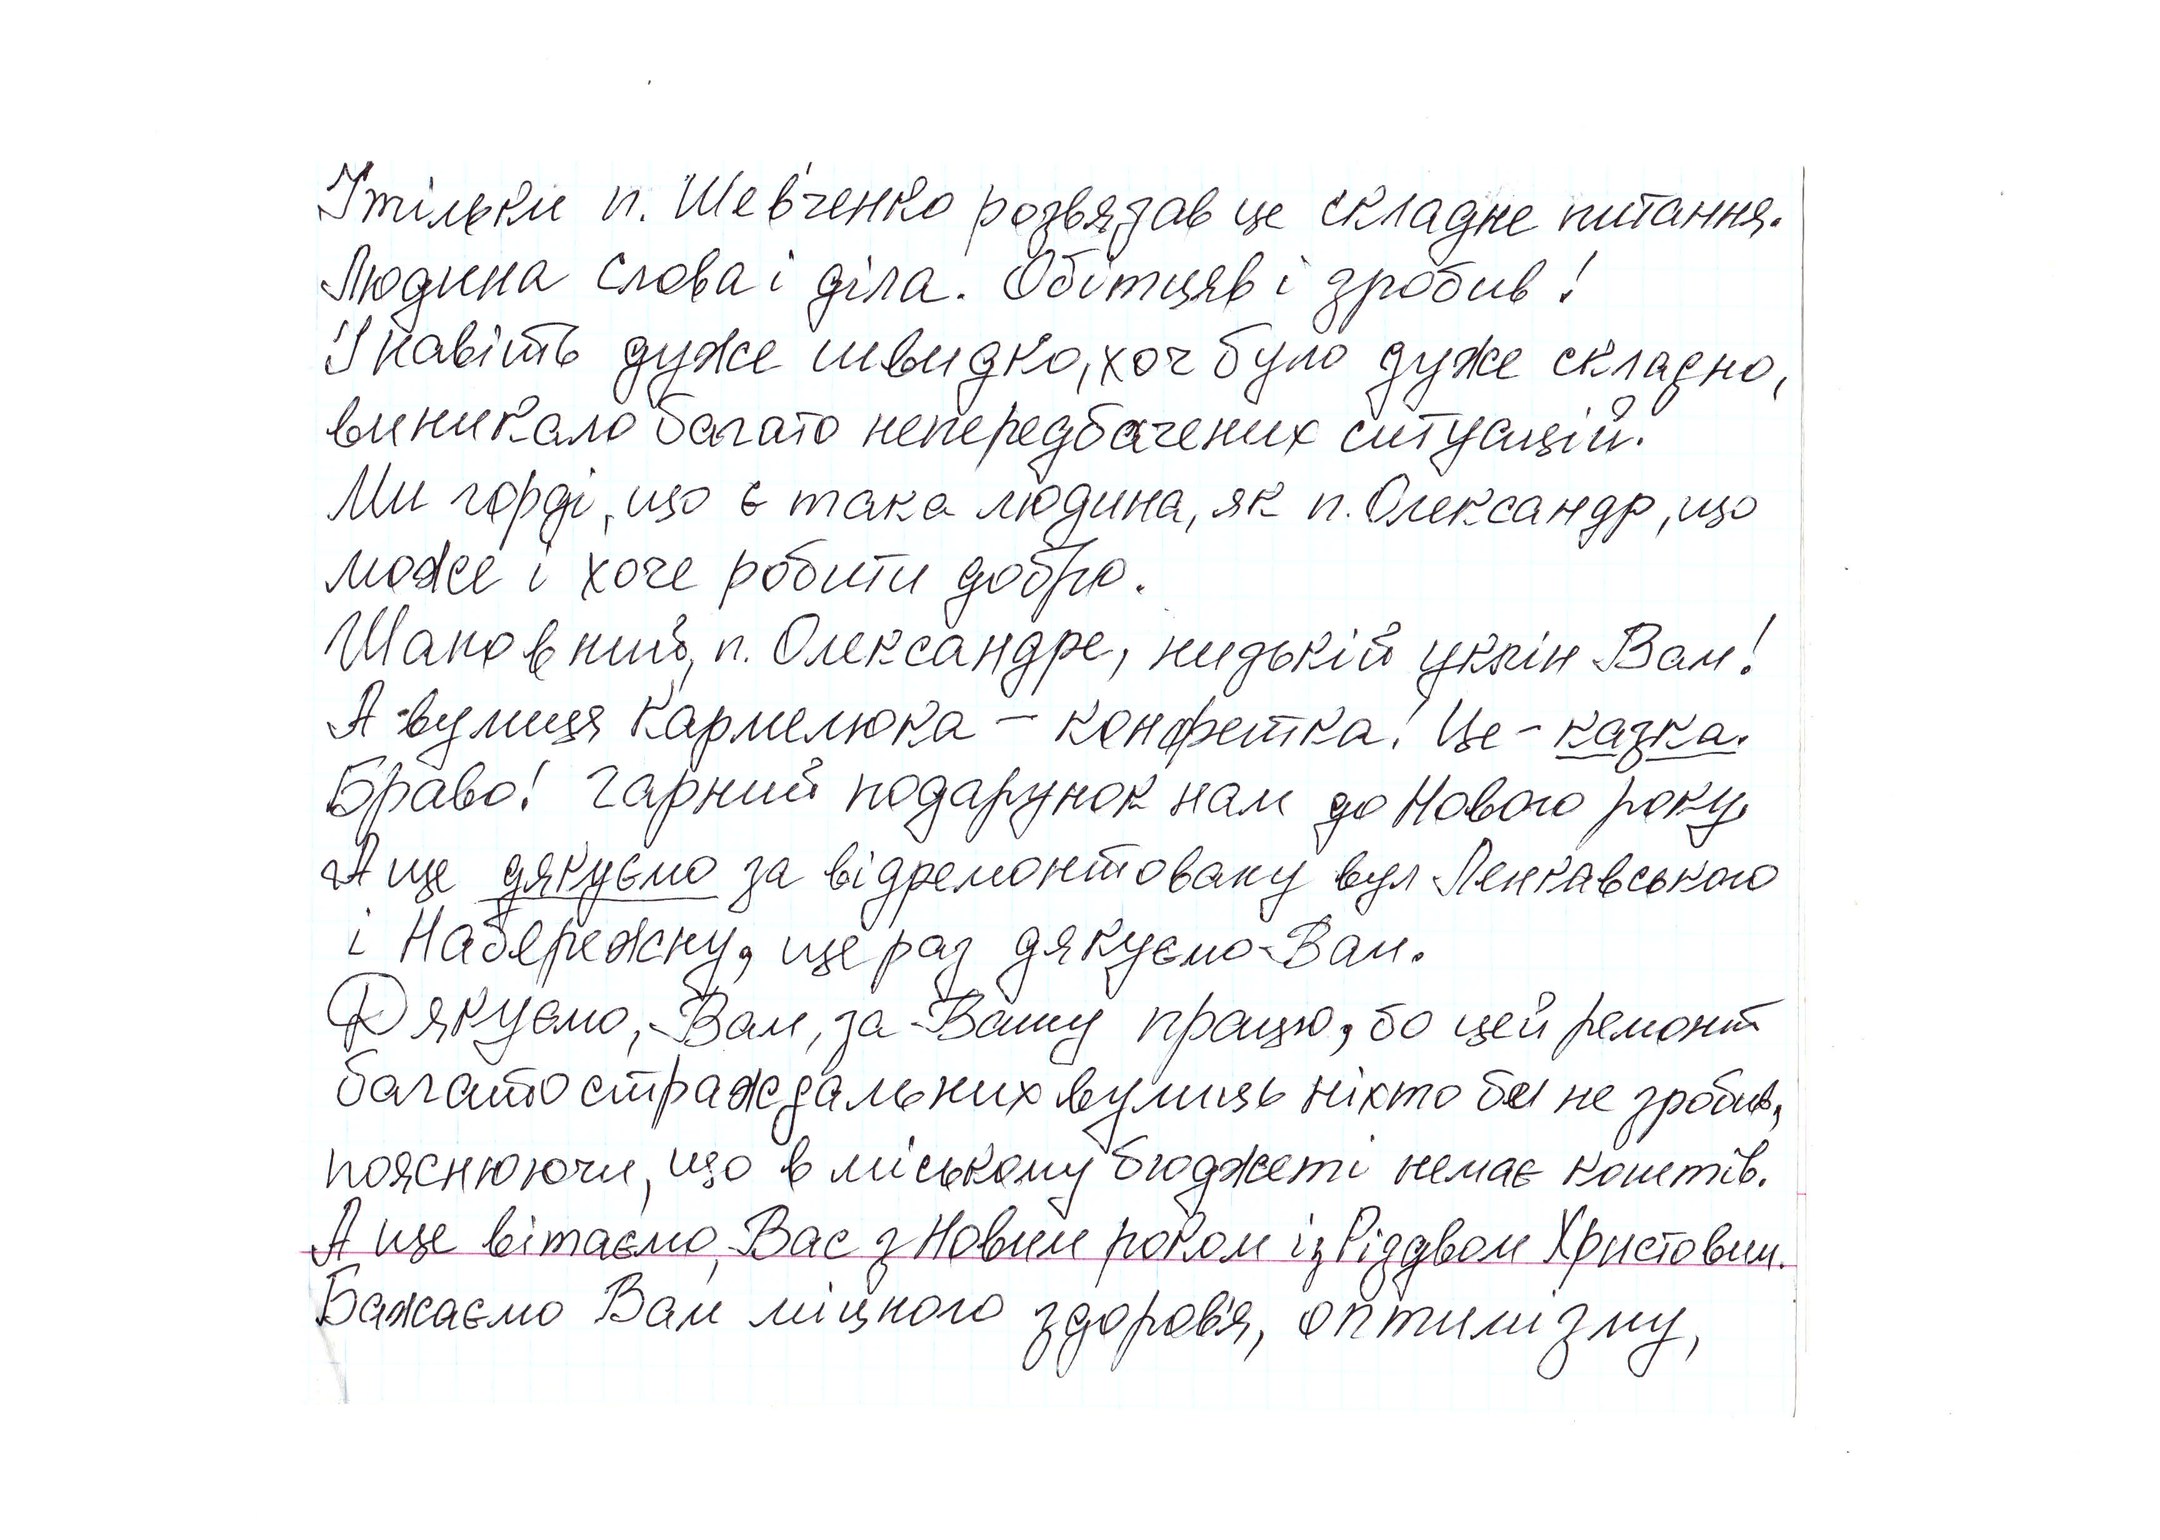 І тільки п. Шевченко розвязав це складне питання.
Людина слова і діла. Обітцяв і зробив!
І навіть дуже швидко, хоч було дуже складно,
виникало багато непередбачених ситуацій.
Ми горді, що є така людина, як п. Олександр, що
може і хоче робити добро.
Шановний, п. Олександре, нидькій уклін Вам!
А вулиця Кармелюка – конфетка! Це – казка.
Браво! Гарний подарунок нам до Нового року.
А ще дякуємо за відремонтовану вул Ленкавського
і Набережну, ще раз дякуємо Вам.
Дякуємо, Вам, за Вашу працю, бо цей ремонт
багатостраждальних вулиць ніхто би не зробив,
пояснюючи, що в міському бюджеті немає коштів.
А ще вітаємо, Вас з Новим роком і з Різдвом Христовим.
Бажаємо Вам міцного здоров'я, оптимізму,